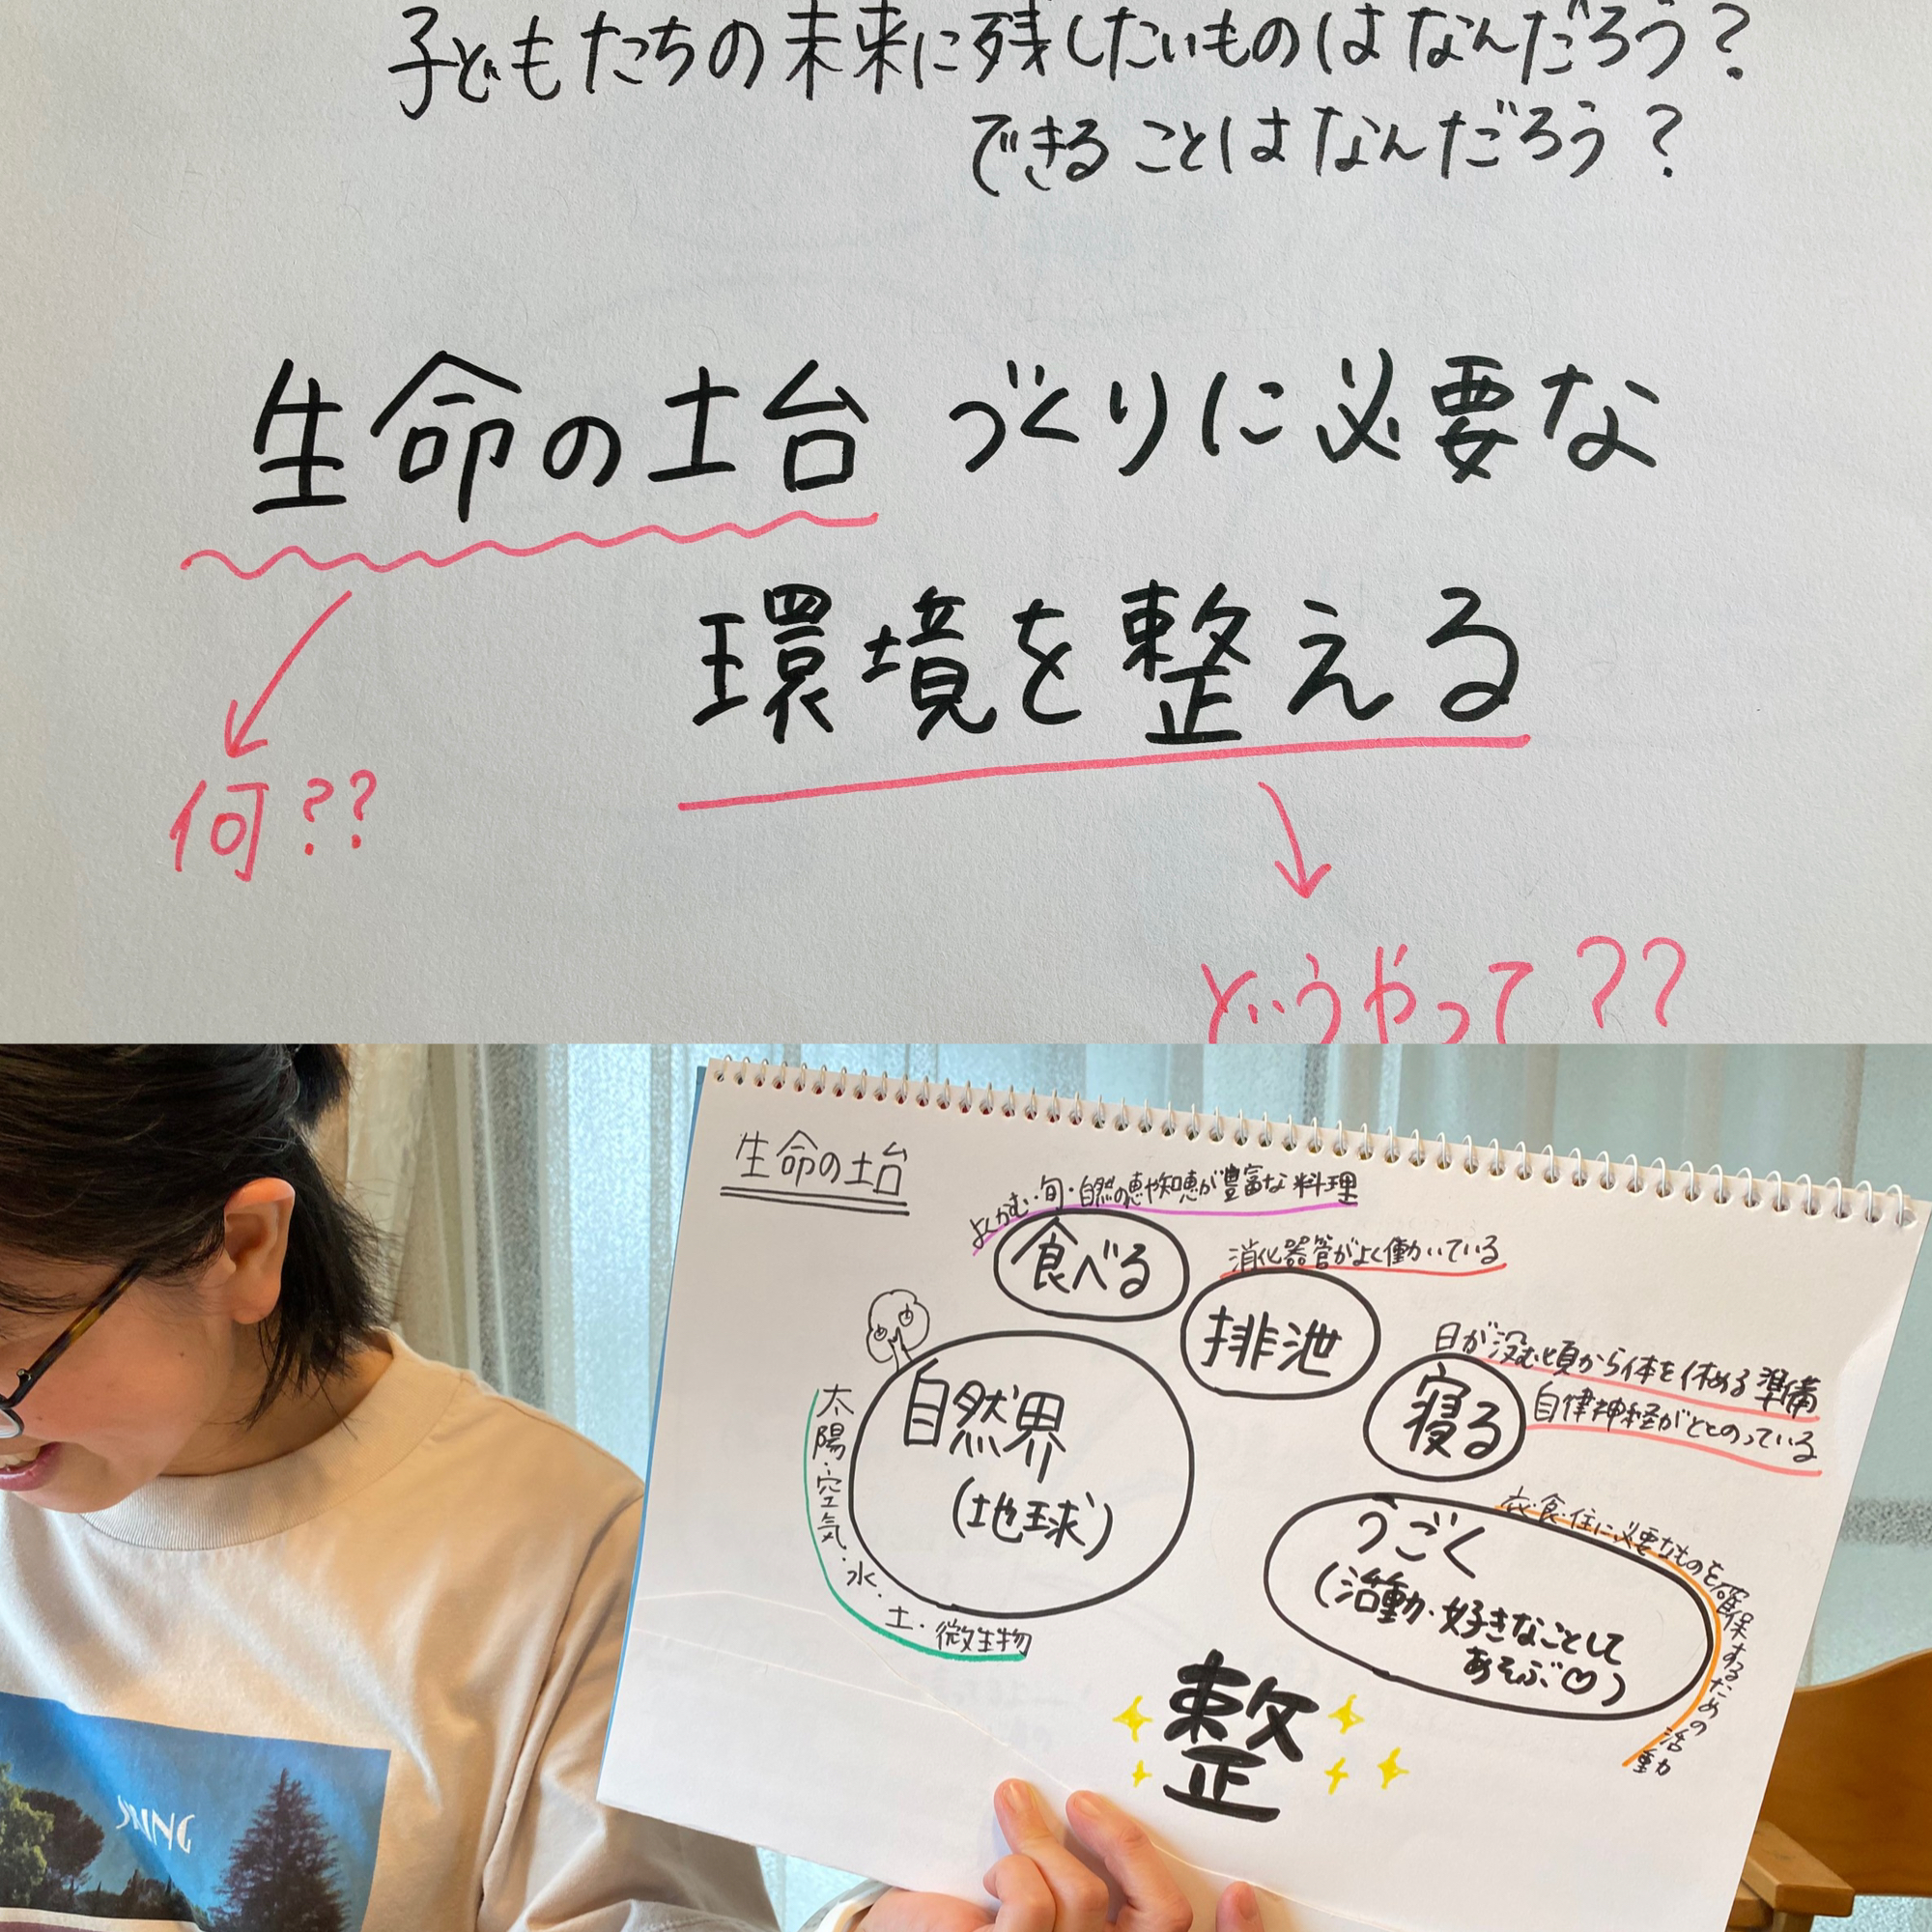 子どもたちの未来に残したいものはなんだろう?
できることはなんだろう?
生命の土台づくりに必要な
環境を整える
何??
どうやって??
生命の土台
よくかむ・旬・自然の恵や知恵が豊富な料理
食べる
消化器管がよく働いている
排泄
日が没む頃から体を休める準備
自律神経がととのっている
寝る
自然界
(地球)
太陽・空気・水・土・微生物
衣・食・住に必要なものを確保するための活動
うごく
(活動・好きなことして
あそぶ♡)
整
SPRING